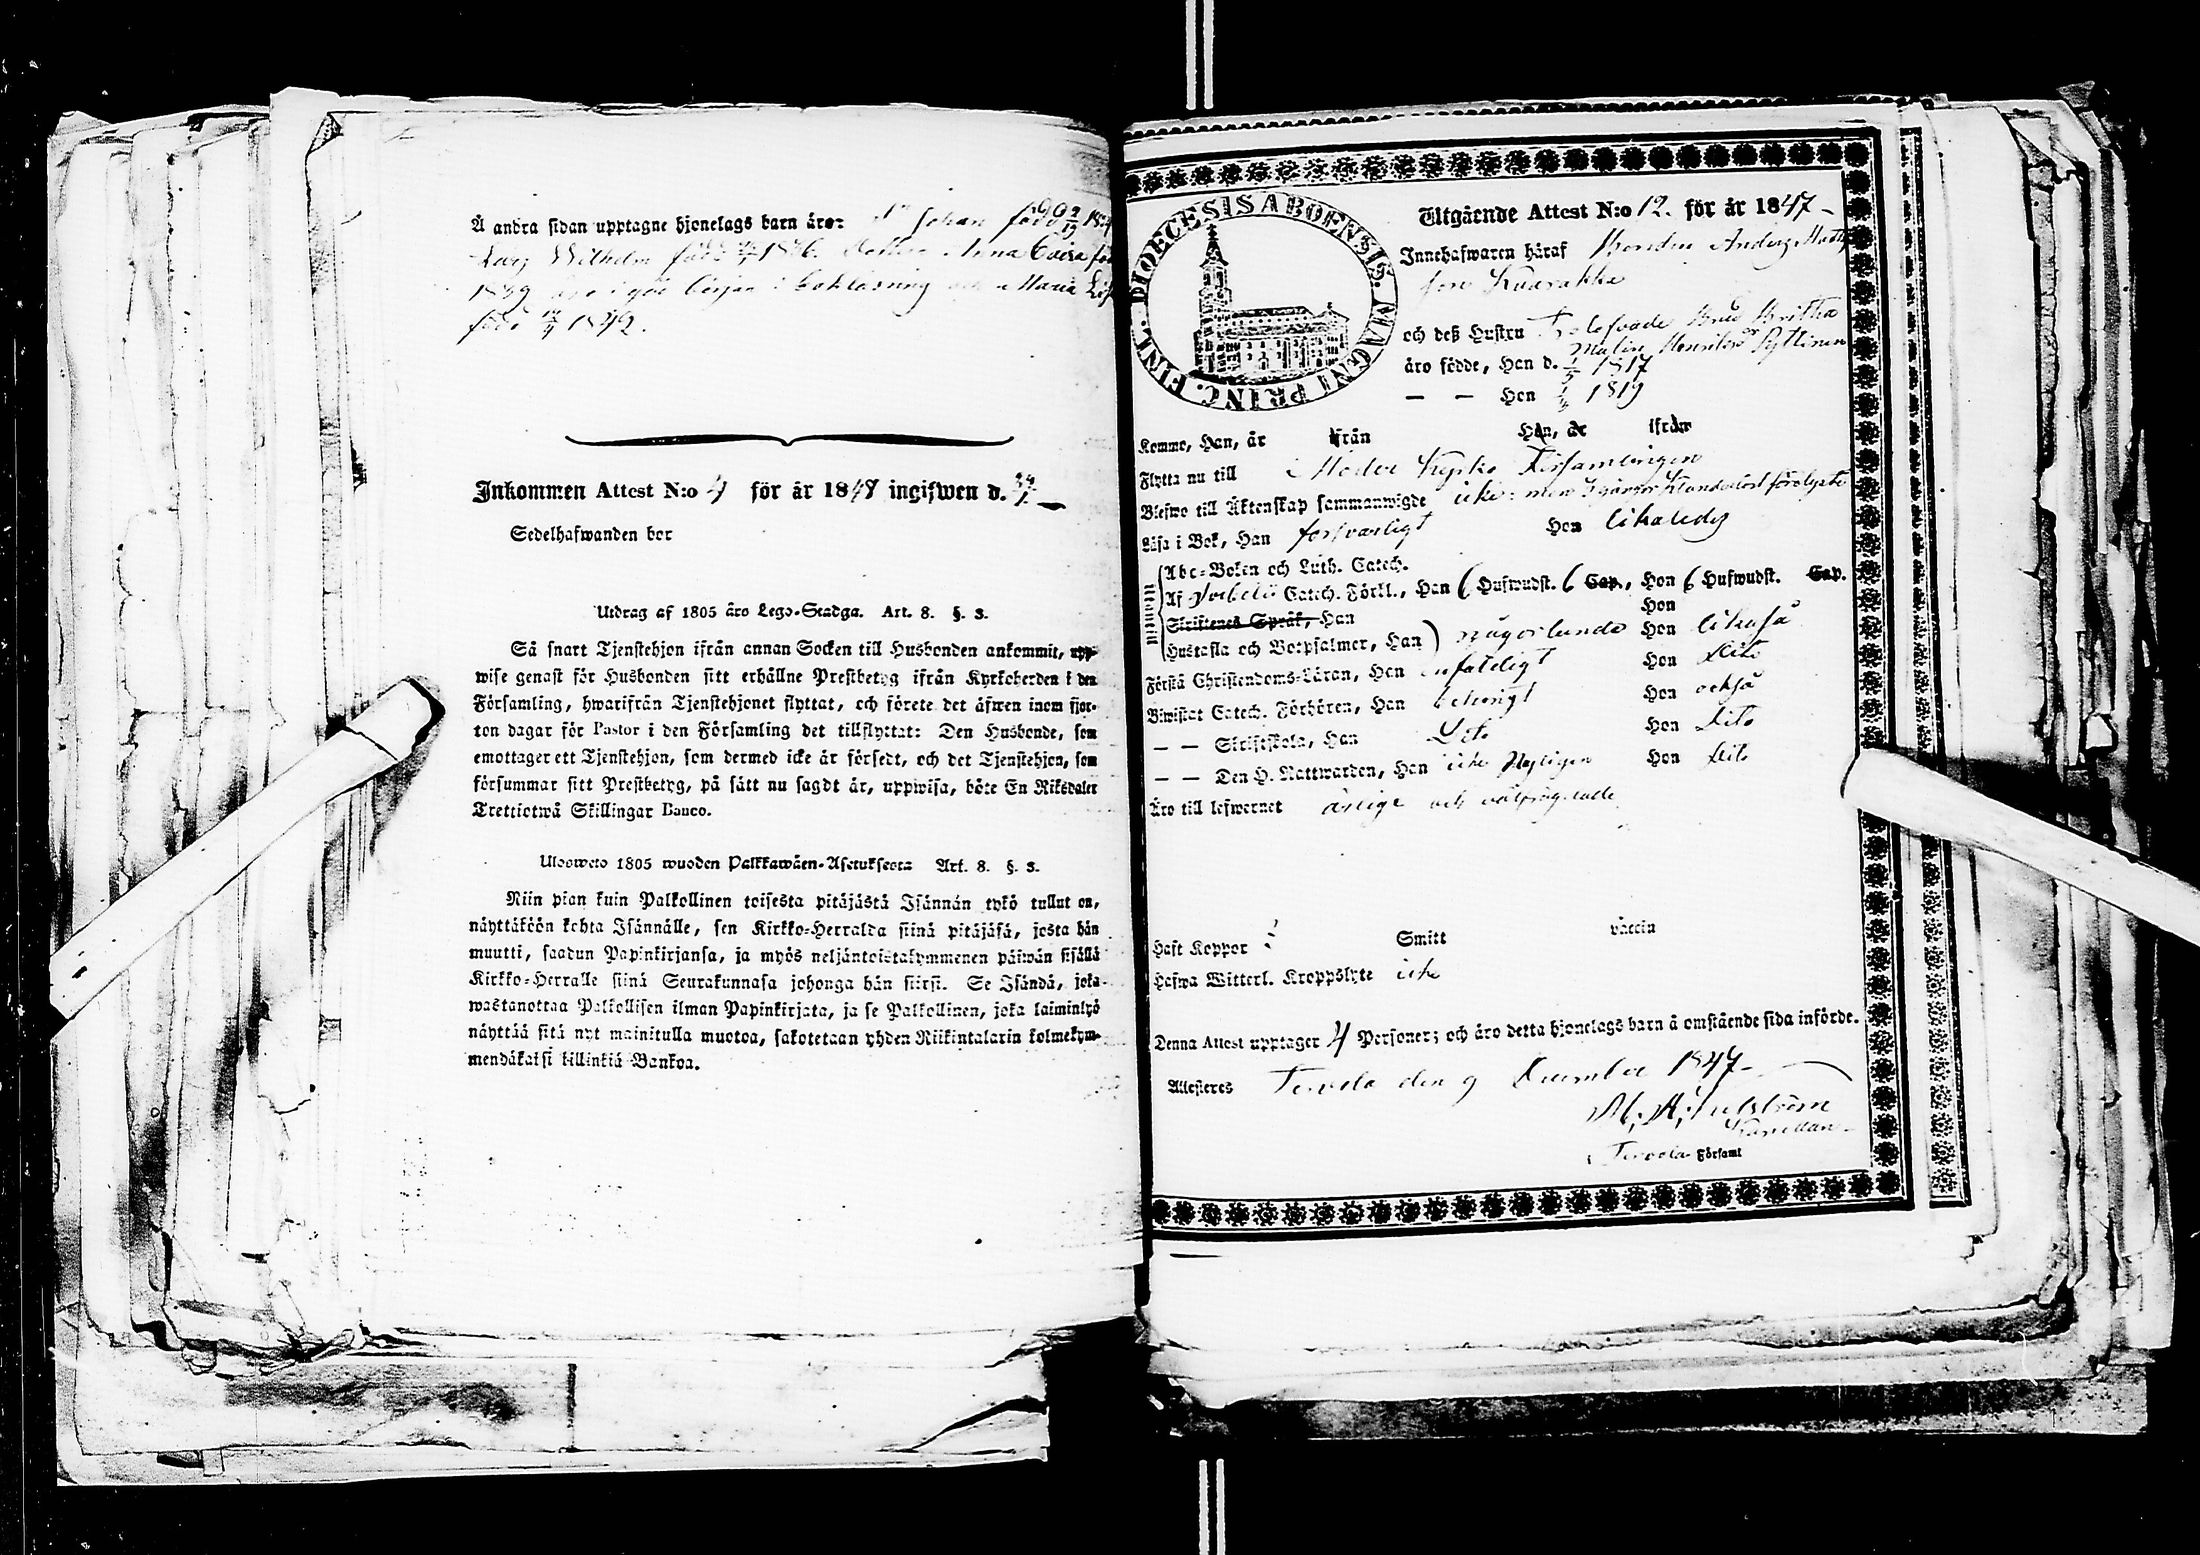 Å andra sidan upptagne hjonelags barn äro: Johan född
Lars Wilhelm född 1836. Anna Caisa
1839 börjar i bokläsning och Maria
född 1842.
Inkommen Attest N:o 4 för år 1848 ingifwen d.
Sedelhafwanden bor
Utdrag af 1805 års Lego-Stadga. Art. 8. §. 3.
Så snart Tjenstehjon ifrån annan Socken till Husbonden ankommit, upp-
wise genast för Husbonden sitt erhållne Prestbetyg ifrån Kyrkoherden i den
Församling, hwarifrån Tjenstehjonet flyttat, och förete det äfwen inom fjor-
ton dagar för Pastor i den Församling det tillflyttat: Den Husbonde, som
emottager ett Tjenstehjon, som dermed icke är försedt, och det Tjenstehjon, som
försummar sitt Prestbetyg, på sätt nu sagdt är, uppwisa, böte En Riksdaler
Trettiotwå Skillingar Banco.
Ulosweto 1805 wuoden Palkkawäen-Asetuksesta Art. 8. §. 3.
Niin pian kuin Palkollinen toisesta pitäjästä Isännän tykö tullut on,
näyttäköön kohta Isännälle, sen Kirkko-Herralda siinä pitäjäsä, josta hän
muutti, saadun Papinkirjansa, ja myös neljäntoistakymmenen päiwän sisällä
Kirkko-Herralle siinä Seurakunnasa johonga hän siirsi. Se Isändä, joka
wastanottaa Palkollisen ilman Papinkirjata, ja se Palkollinen, joka laiminlyö
näyttää sitä nyt mainitulla muotoa, sakotetaan yhden Riikintalarin kolmekym-
mendäkaksi killinkiä Bankoa.
DIOECESIS ABOENSIS. MAGNI PRINC. FINL.
Utgående Attest N:o 12. för år 1847
Innehafwaren häraf Bonden Anders Matts
son Kuarakka
och deß Hustru Trolofvade Brud Britha
Malin Henriksdr Pyttinen
äro födde, Han d. 1817
— — Hon 1819
Komne, Han, år ifrån Hon, år ifrån
Flytta nu till i Moder Kyrko Församlingen
Blefwo till Äktenskap sammanwigde icke: men 3 gånger klanderlöst förelyste
Läsa i Bok, Han försvarligt Hon likaledes
Utantill
Abc-Boken och Luth. Catech.
Af Svebelii Catech. Förkl., Han 6 Hufwudst. 6 Cap., Hon 6 Hufwudst. Cap.
Skriftenes Språk, Han Hon
Hustafla och Botpsalmer, Han någorlunda Hon likaså
Förstå Christendoms-Läran, Han enfaldigt Hon Dito
Biwistat Catech. Förhören, Han behörigt Hon också
— — Skriftskola, Han Dito Hon Dito
— — Den H. Nattwarden, Han icke Nyligen Hon Dito
Äro till lefwernet ärlige och välfrägdade
Haft Koppor Smitt vaccin
Hafwa Witterl. Kroppslyte icke
Denna Attest upptager 4 Personer; och äro detta hjonelags barn å omstående sida införde.
Attesteres Tervola den 9 December 1847
Kapellan
Tervola Församl